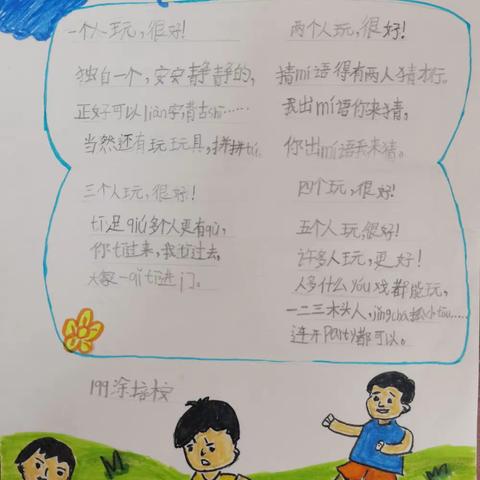 一个人玩，很好！
独自一个，安安静静的，
正好可以liàn字，背古shī……
当然还有玩玩具，拼拼tú。
两个人玩，很好！
猜mí语得有两人猜才行。
我出mí语你来猜，
你出mí语我来猜。
三个人玩，很好！
tī足qiú多个人更有qù，
你tī过来，我tī过去，
大家一qǐ tī进门。
四个玩，很好！
五个人玩，很好！
许多人玩，更好！
人多什么yóu戏都能玩，
一二三木头人，jǐngchá抓小tōu……
连开Party都可以。
涂培